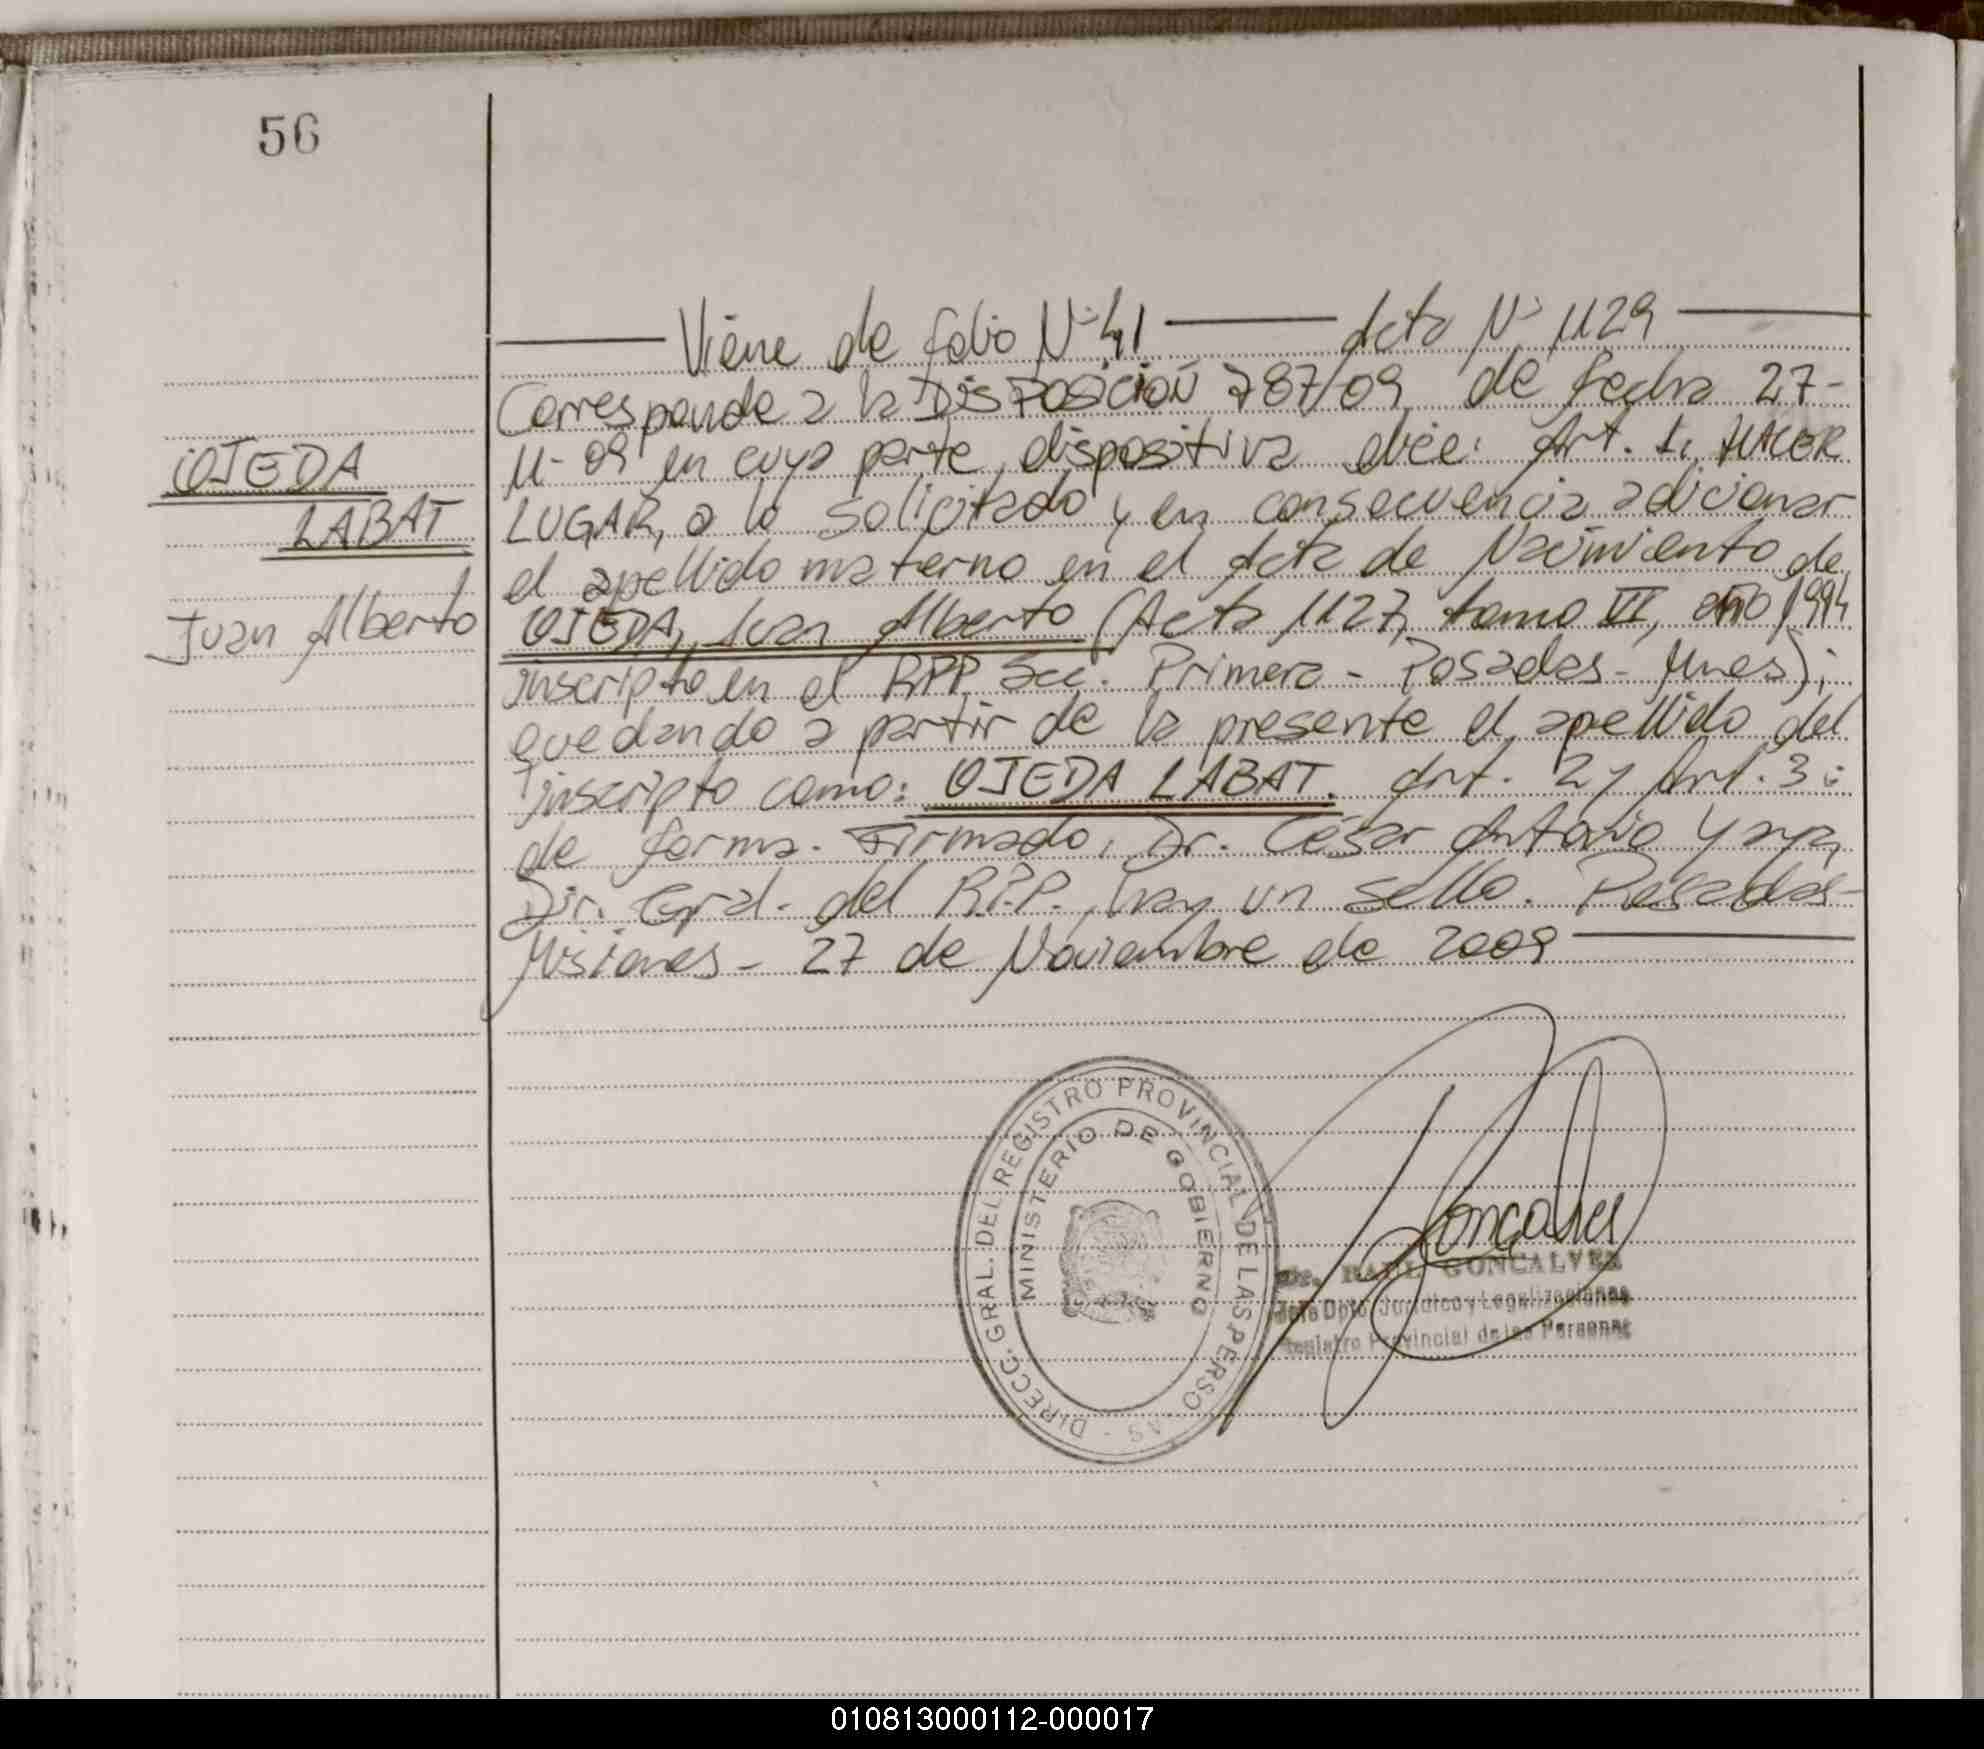 56
Viene de folio Nº 41 Acta Nº 1129
Corresponde a la DISPOSICION 787/09, de fecha 27-
11-09 en cuya parte dispositiva dice: Art. 1: HACER
LUGAR, a lo solicitado y en consecuencia adicionar
el apellido materno en el Acta de Nacimiento de
OJEDA, Juan Alberto (Acta 1127, tomo VI, año 1994
inscripto en el RPP Sec. Primera - Posadas - Mnes);
quedando a partir de la presente el apellido del
inscripto como: OJEDA LABAT. Art. 2 y Art. 3:
de forma. Firmado, Dr. César Antonio Yaya,
Dir. Gral. del R.P.P., hay un sello. Posadas-
Misiones - 27 de Noviembre de 2009
OJEDA
LABAT
Juan Alberto
DIRECC. GRAL. DEL REGISTRO PROVINCIAL DE LAS PERSO AS -
MINISTERIO DE GOBIERNO
Goncalves
RAUL GONCALVES
Jefe Dpto. Jurídico y Legalizaciones
Registro Provincial de las Personas
010813000112-000017